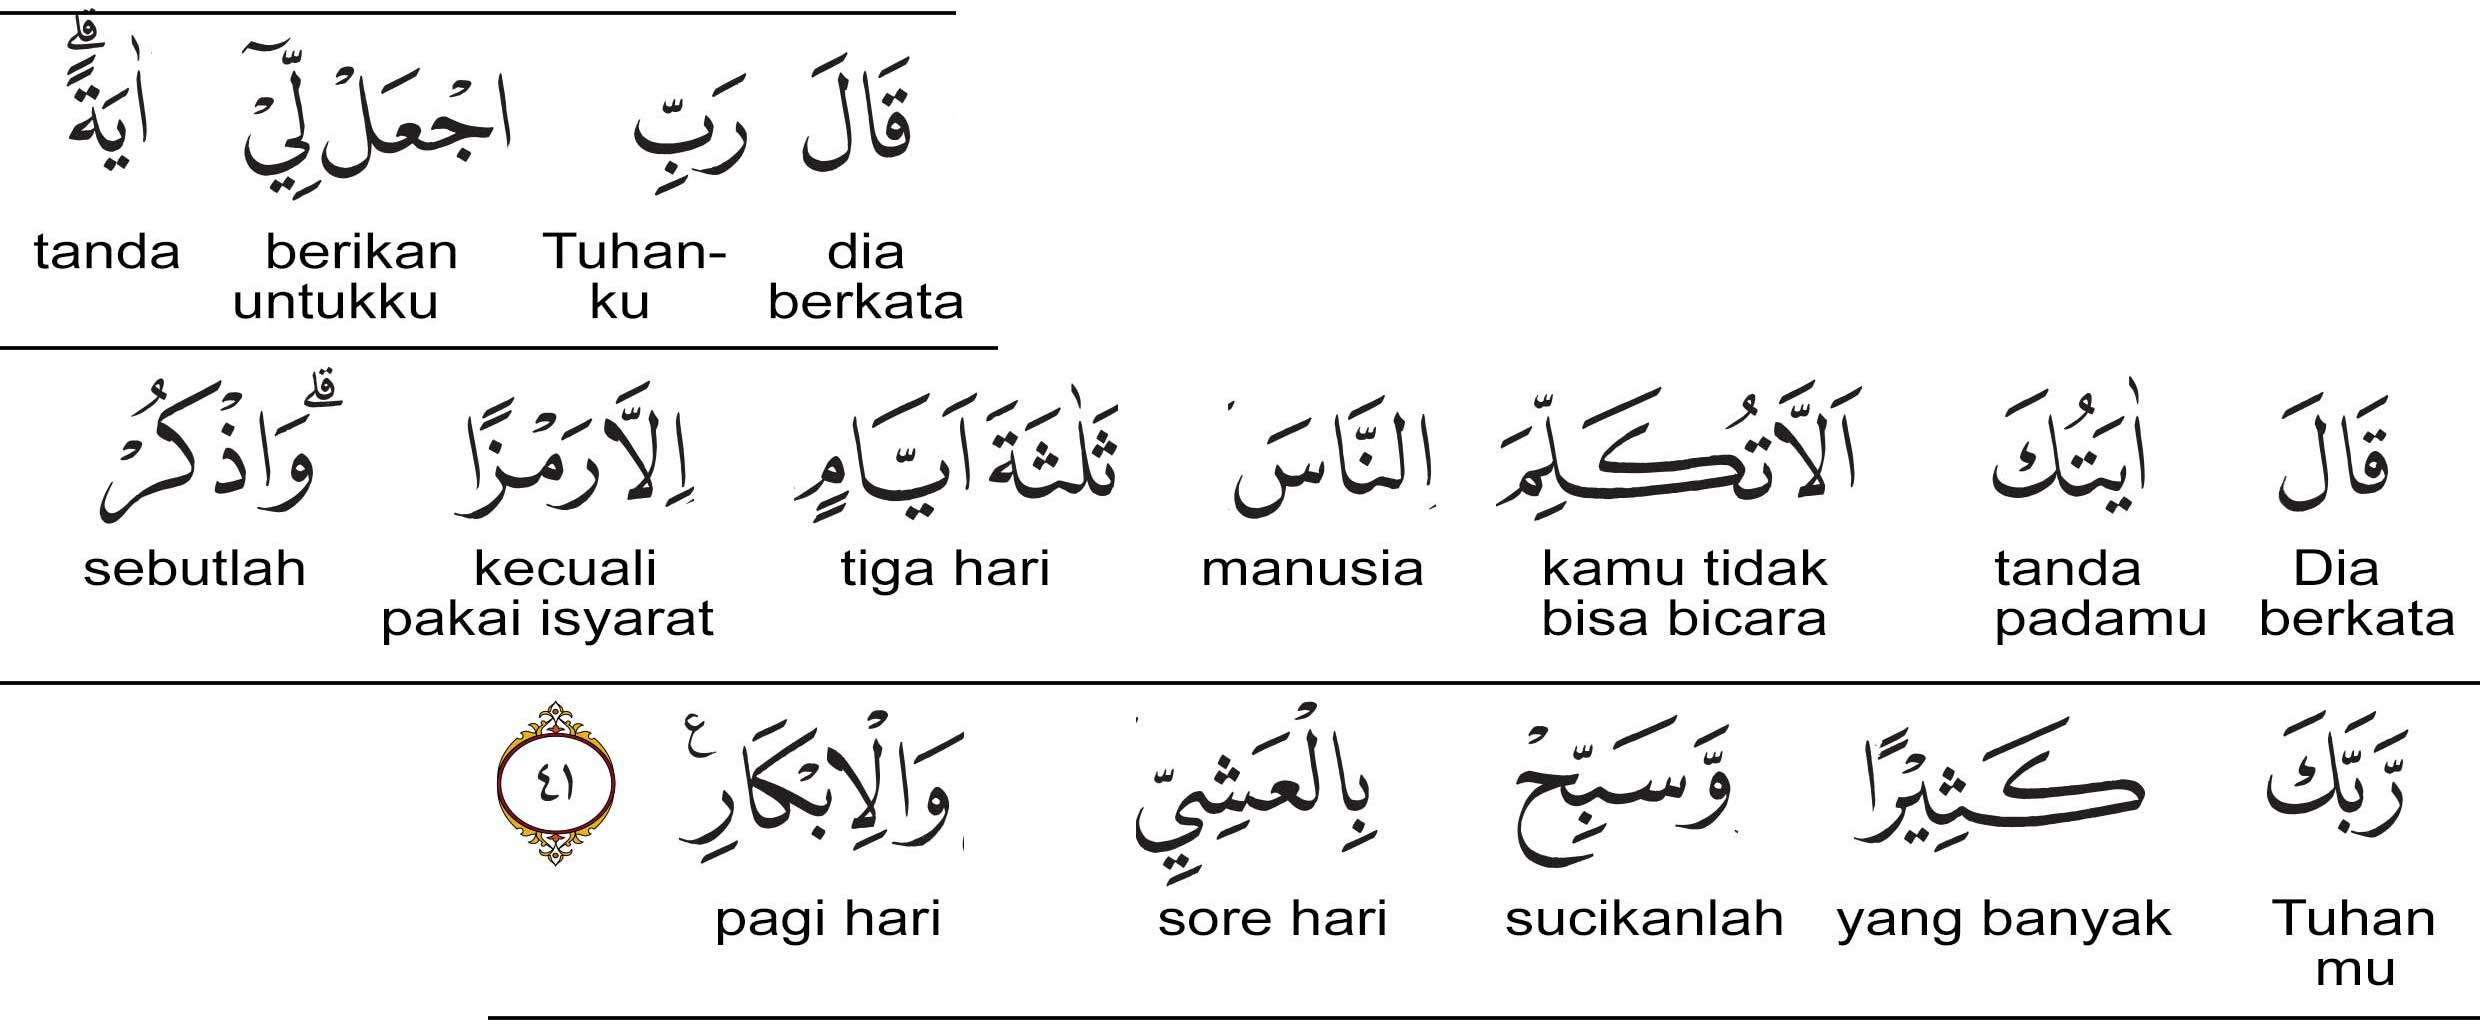 قَالَ رَبِّ اجْعَلْ لِّيْٓ اٰيَةً ۗ
dia Tuhan- berikan tanda
berkata ku untukku
قَالَ اٰيَتُكَ اَلَّا تُكَلِّمَ النَّاسَ ثَلٰثَةَ اَيَّامٍ اِلَّا رَمْزًا ۗ وَاذْكُرْ
Dia tanda kamu tidak manusia tiga hari kecuali sebutlah
berkata padamu bisa bicara pakai isyarat
رَّبَّكَ كَثِيْرًا وَّسَبِّحْ بِالْعَشِيِّ وَالْاِبْكَارِ ࣖ ٤١
Tuhan yang banyak sucikanlah sore hari pagi hari
mu